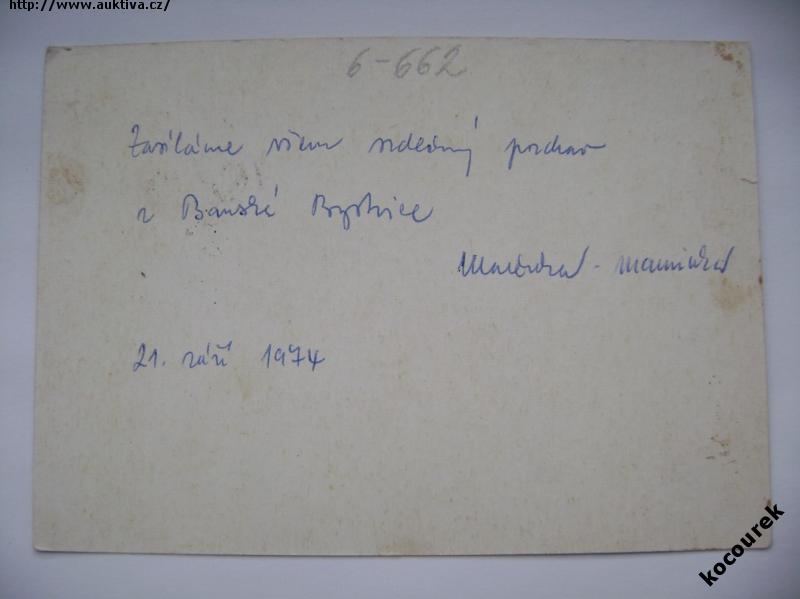 http://www.auktiva.cz/
6-662
Zasíláme všem srdečný pozdrav
z Banské Bystrice
maminka
21. září 1974
kocourek